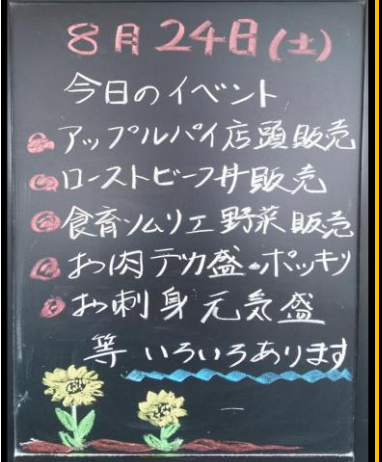 8月24日(土)
今日のイベント
アップルパイ店頭販売
ローストビーフ丼販売
食育ソムリエ野菜販売
お肉デカ盛・ポッキリ
お刺身元気盛
等いろいろあります